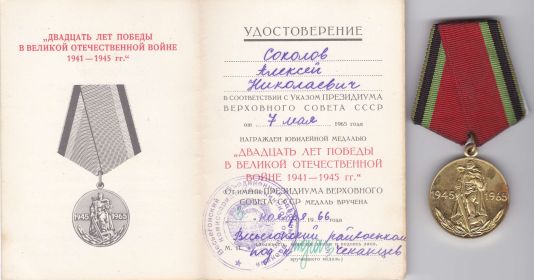 "ДВАДЦАТЬ ЛЕТ ПОБЕДЫ
В ВЕЛИКОЙ ОТЕЧЕСТВЕННОЙ ВОЙНЕ
1941—1945 гг."
1945 1965
УДОСТОВЕРЕНИЕ
Соколов
Алексей
Николаевич
В СООТВЕТСТВИИ С УКАЗОМ ПРЕЗИДИУМА
ВЕРХОВНОГО СОВЕТА СССР
от 7 мая 1965 года
НАГРАЖДЕН ЮБИЛЕЙНОЙ МЕДАЛЬЮ
„ДВАДЦАТЬ ЛЕТ ПОБЕДЫ
В ВЕЛИКОЙ ОТЕЧЕСТВЕННОЙ
ВОЙНЕ 1941—1945 гг."
ОТ ИМЕНИ ПРЕЗИДИУМА ВЕРХОВНОГО
СОВЕТА СССР МЕДАЛЬ ВРУЧЕНА
ноября 66 года
райвоенком
М. П.
вручившего медаль)
1945 1965